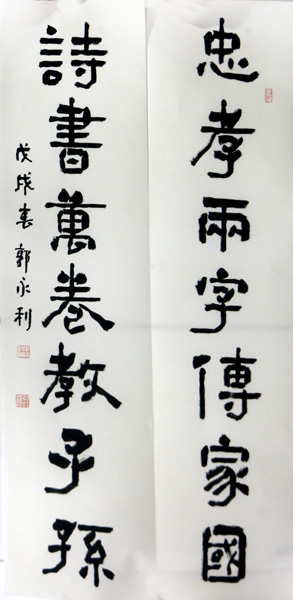 忠孝兩字傳家國
詩書萬卷教子孫
戊戌春郭永利